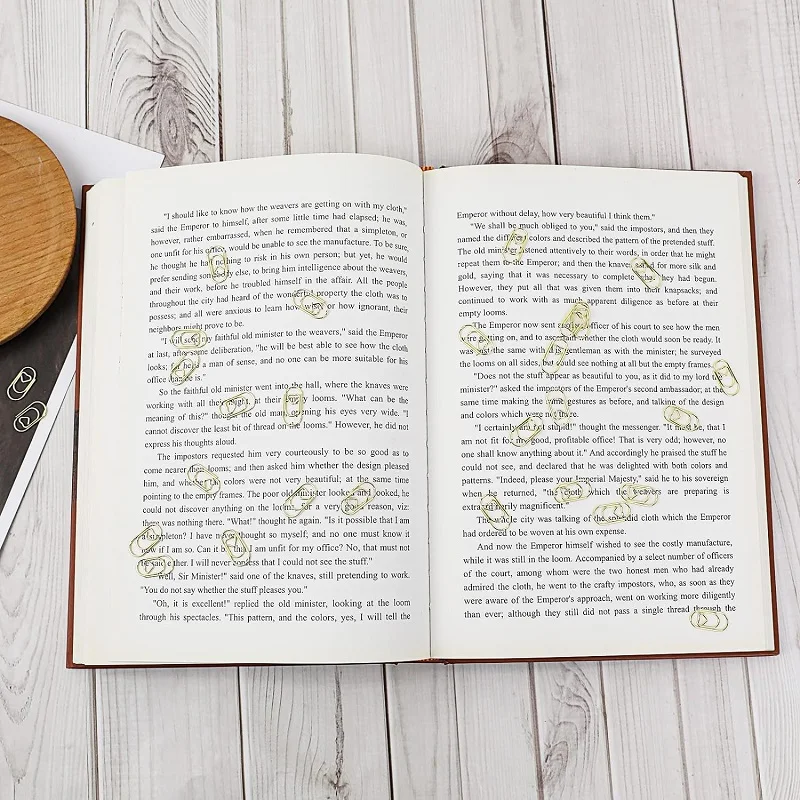 "I should like to know how the weavers are getting on with my cloth,"
said the Emperor to himself, after some little time had elapsed; he was,
however, rather embarrassed, when he remembered that a simpleton, or
one unfit for his office, would be unable to see the manufacture. To be sure,
he thought he had nothing to risk in his own person; but yet, he would
prefer sending somebody else, to bring him intelligence about the weavers,
and their work, before he troubled himself in the affair. All the people
throughout the city had heard of the wonderful property the cloth was to
possess; and all were anxious to learn how wise, or how ignorant, their
neighbors might prove to be.
"I will send my faithful old minister to the weavers," said the Emperor
at last, after some deliberation, "he will be best able to see how the cloth
looks; for he is a man of sense, and no one can be more suitable for his
office than he is."
So the faithful old minister went into the hall, where the knaves were
working with all their might, at their empty looms. "What can be the
meaning of this?" thought the old man, opening his eyes very wide. "I
cannot discover the least bit of thread on the looms." However, he did not
express his thoughts aloud.
The impostors requested him very courteously to be so good as to
come nearer their looms; and then asked him whether the design pleased
him, and whether the colors were not very beautiful; at the same time
pointing to the empty frames. The poor old minister looked and looked, he
could not discover anything on the looms, for a very good reason, viz:
there was nothing there. "What!" thought he again. "Is it possible that I am
a simpleton? I have never thought so myself; and no one must know it
now if I am so. Can it be, that I am unfit for my office? No, that must not
be said either. I will never confess that I could not see the stuff."
"Well, Sir Minister!" said one of the knaves, still pretending to work.
"You do not say whether the stuff pleases you."
"Oh, it is excellent!" replied the old minister, looking at the loom
through his spectacles. "This pattern, and the colors, yes, I will tell the
Emperor without delay, how very beautiful I think them."
"We shall be much obliged to you," said the impostors, and then they
named the different colors and described the pattern of the pretended stuff.
The old minister listened attentively to their words, in order that he might
repeat them to the Emperor; and then the knaves asked for more silk and
gold, saying that it was necessary to complete what they had begun.
However, they put all that was given them into their knapsacks; and
continued to work with as much apparent diligence as before at their
empty looms.
The Emperor now sent another officer of his court to see how the men
were getting on, and to ascertain whether the cloth would soon be ready. It
was just the same with this gentleman as with the minister; he surveyed
the looms on all sides, but could see nothing at all but the empty frames.
"Does not the stuff appear as beautiful to you, as it did to my lord the
minister?" asked the impostors of the Emperor's second ambassador; at the
same time making the same gestures as before, and talking of the design
and colors which were not there.
"I certainly am not stupid!" thought the messenger. "It must be, that I
am not fit for my good, profitable office! That is very odd; however, no
one shall know anything about it." And accordingly he praised the stuff he
could not see, and declared that he was delighted with both colors and
patterns. "Indeed, please your Imperial Majesty," said he to his sovereign
when he returned, "the cloth which the weavers are preparing is
extraordinarily magnificent."
The whole city was talking of the splendid cloth which the Emperor
had ordered to be woven at his own expense.
And now the Emperor himself wished to see the costly manufacture,
while it was still in the loom. Accompanied by a select number of officers
of the court, among whom were the two honest men who had already
admired the cloth, he went to the crafty impostors, who, as soon as they
were aware of the Emperor's approach, went on working more diligently
than ever; although they still did not pass a single thread through the